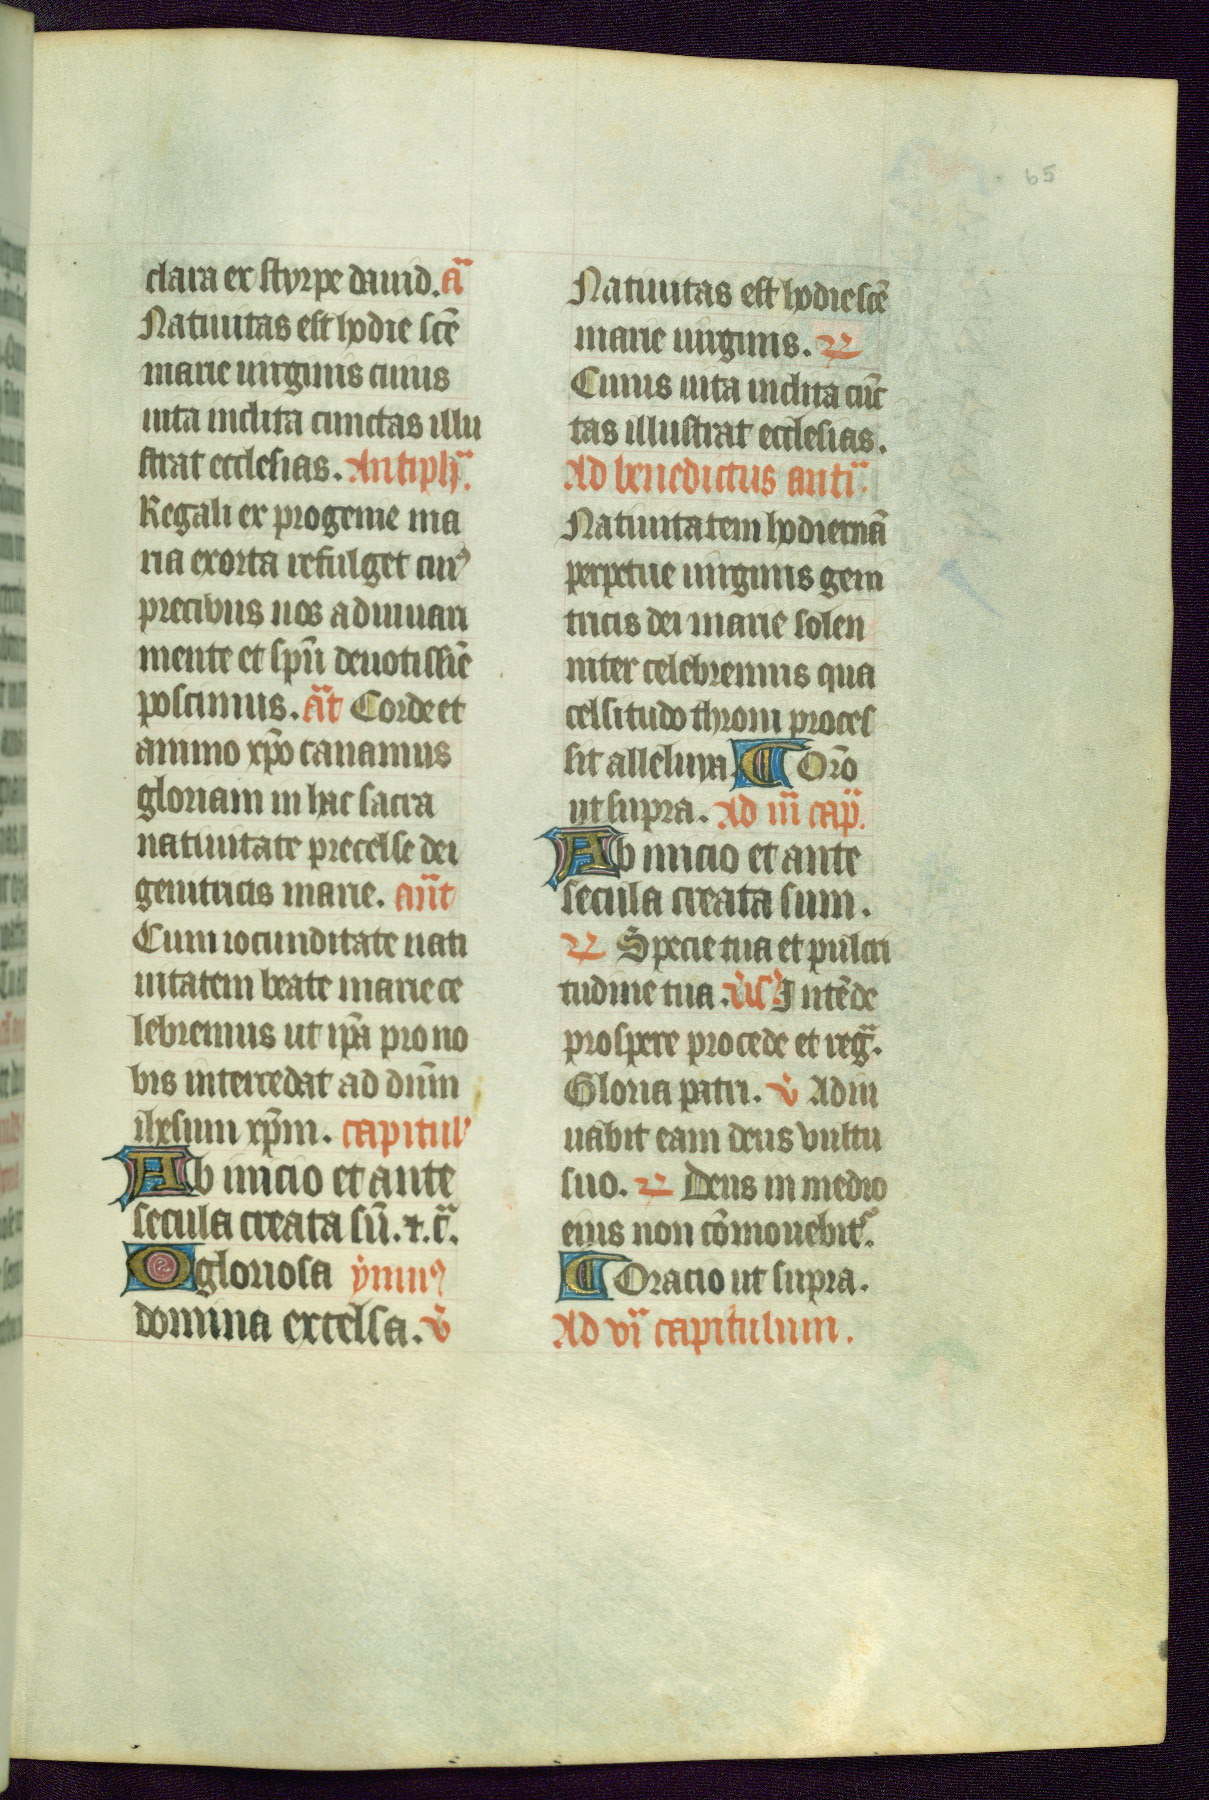 65
clara ex styrpe dauid. a̅
Natiuitas est hodie sc̅e
marie uirginis cuius
uita inclita cunctas illu
strat ecclesias. Antiph̅.
Regali ex progenie ma
ria exorta refulget cuiꝰ
precibus nos adiuuari
mente et spu̅ deuotissi̅e
poscimus. a̅t Corde et
animo xp̅o canamus
gloriam in hac sacra
natiuitate precelse dei
genitricis marie. an̅t
Cum iocunditate nati
uitatem beate marie ce
lebremus ut ip̅a pro no
bis intercedat ad dn̅m
ih̅esum xp̅m. capitul'
Ab inicio et ante
secula creata su̅. ⁊. c̅.
O gloriosa ymnꝰ
domina excelsa. ℣
Natiuitas est hodie sc̅e
marie uirginis. ℟
Cuius uita inclita cu̅c
tas illustrat ecclesias.
Ad benedictus anti̅.
Natiuitatem hodierna̅
perpetue uirginis geni
tricis dei marie solen
niter celebremus qua
celsitudo throni proces
sit alleluya. C Or̅o
ut supra. Ad iii̅ cap̅.
Ab inicio et ante
secula creata sum.
℟ Specie tua et pulcri
tudine tua. v̅s Inte̅de
prospere procede et reg̅.
Gloria patri. ℣ Adiu
uabit eam deus vultu
suo. ℟ Deus in medio
eius non co̅mouebit᷑.
C Oracio ut supra.
Ad vi̅ capitulum.